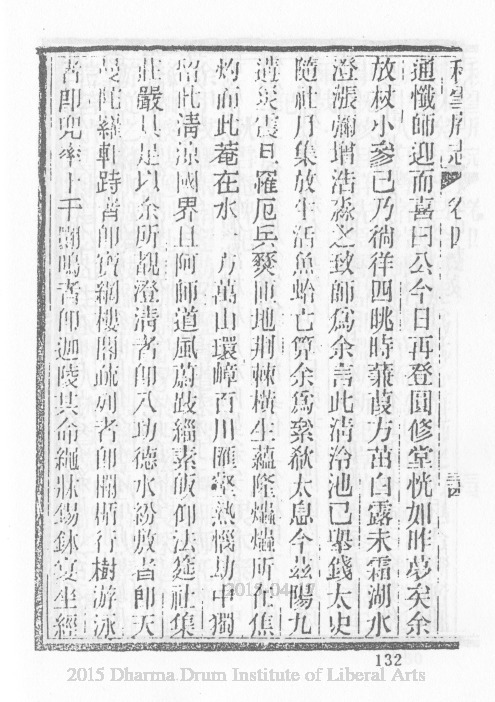 通懺師迎而喜曰公今日再登圓修堂恍如昨夢矣余
放杖小參已乃徜徉四眺時蒹葭方苗白露未霜湖水
澄漲彌增浩淼之致師為余言此清泠池已舉錢太史
隨社月集放生活魚蛤亡算余為絫欷太息今茲陽九
遘災震旦罹厄兵燹匝地荆棘橫生蘊隆爞爞所在焦
灼而此菴在水一方萬山環嶂百川匯壑熱惱劫中獨
留此清涼國界且阿師道風蔚跂緇素皈仰法筵社集
莊嚴具足以余所覯澄清者即八功德水紛敷者即天
曼陀羅軒跱者即寶網樓閣疏列者即欄楯行樹游泳
者即兜率十千翾鳴者即迦陵共命繩牀錫鉢宴坐經
132
2015 Dharma Drum Institute of Liberal Arts